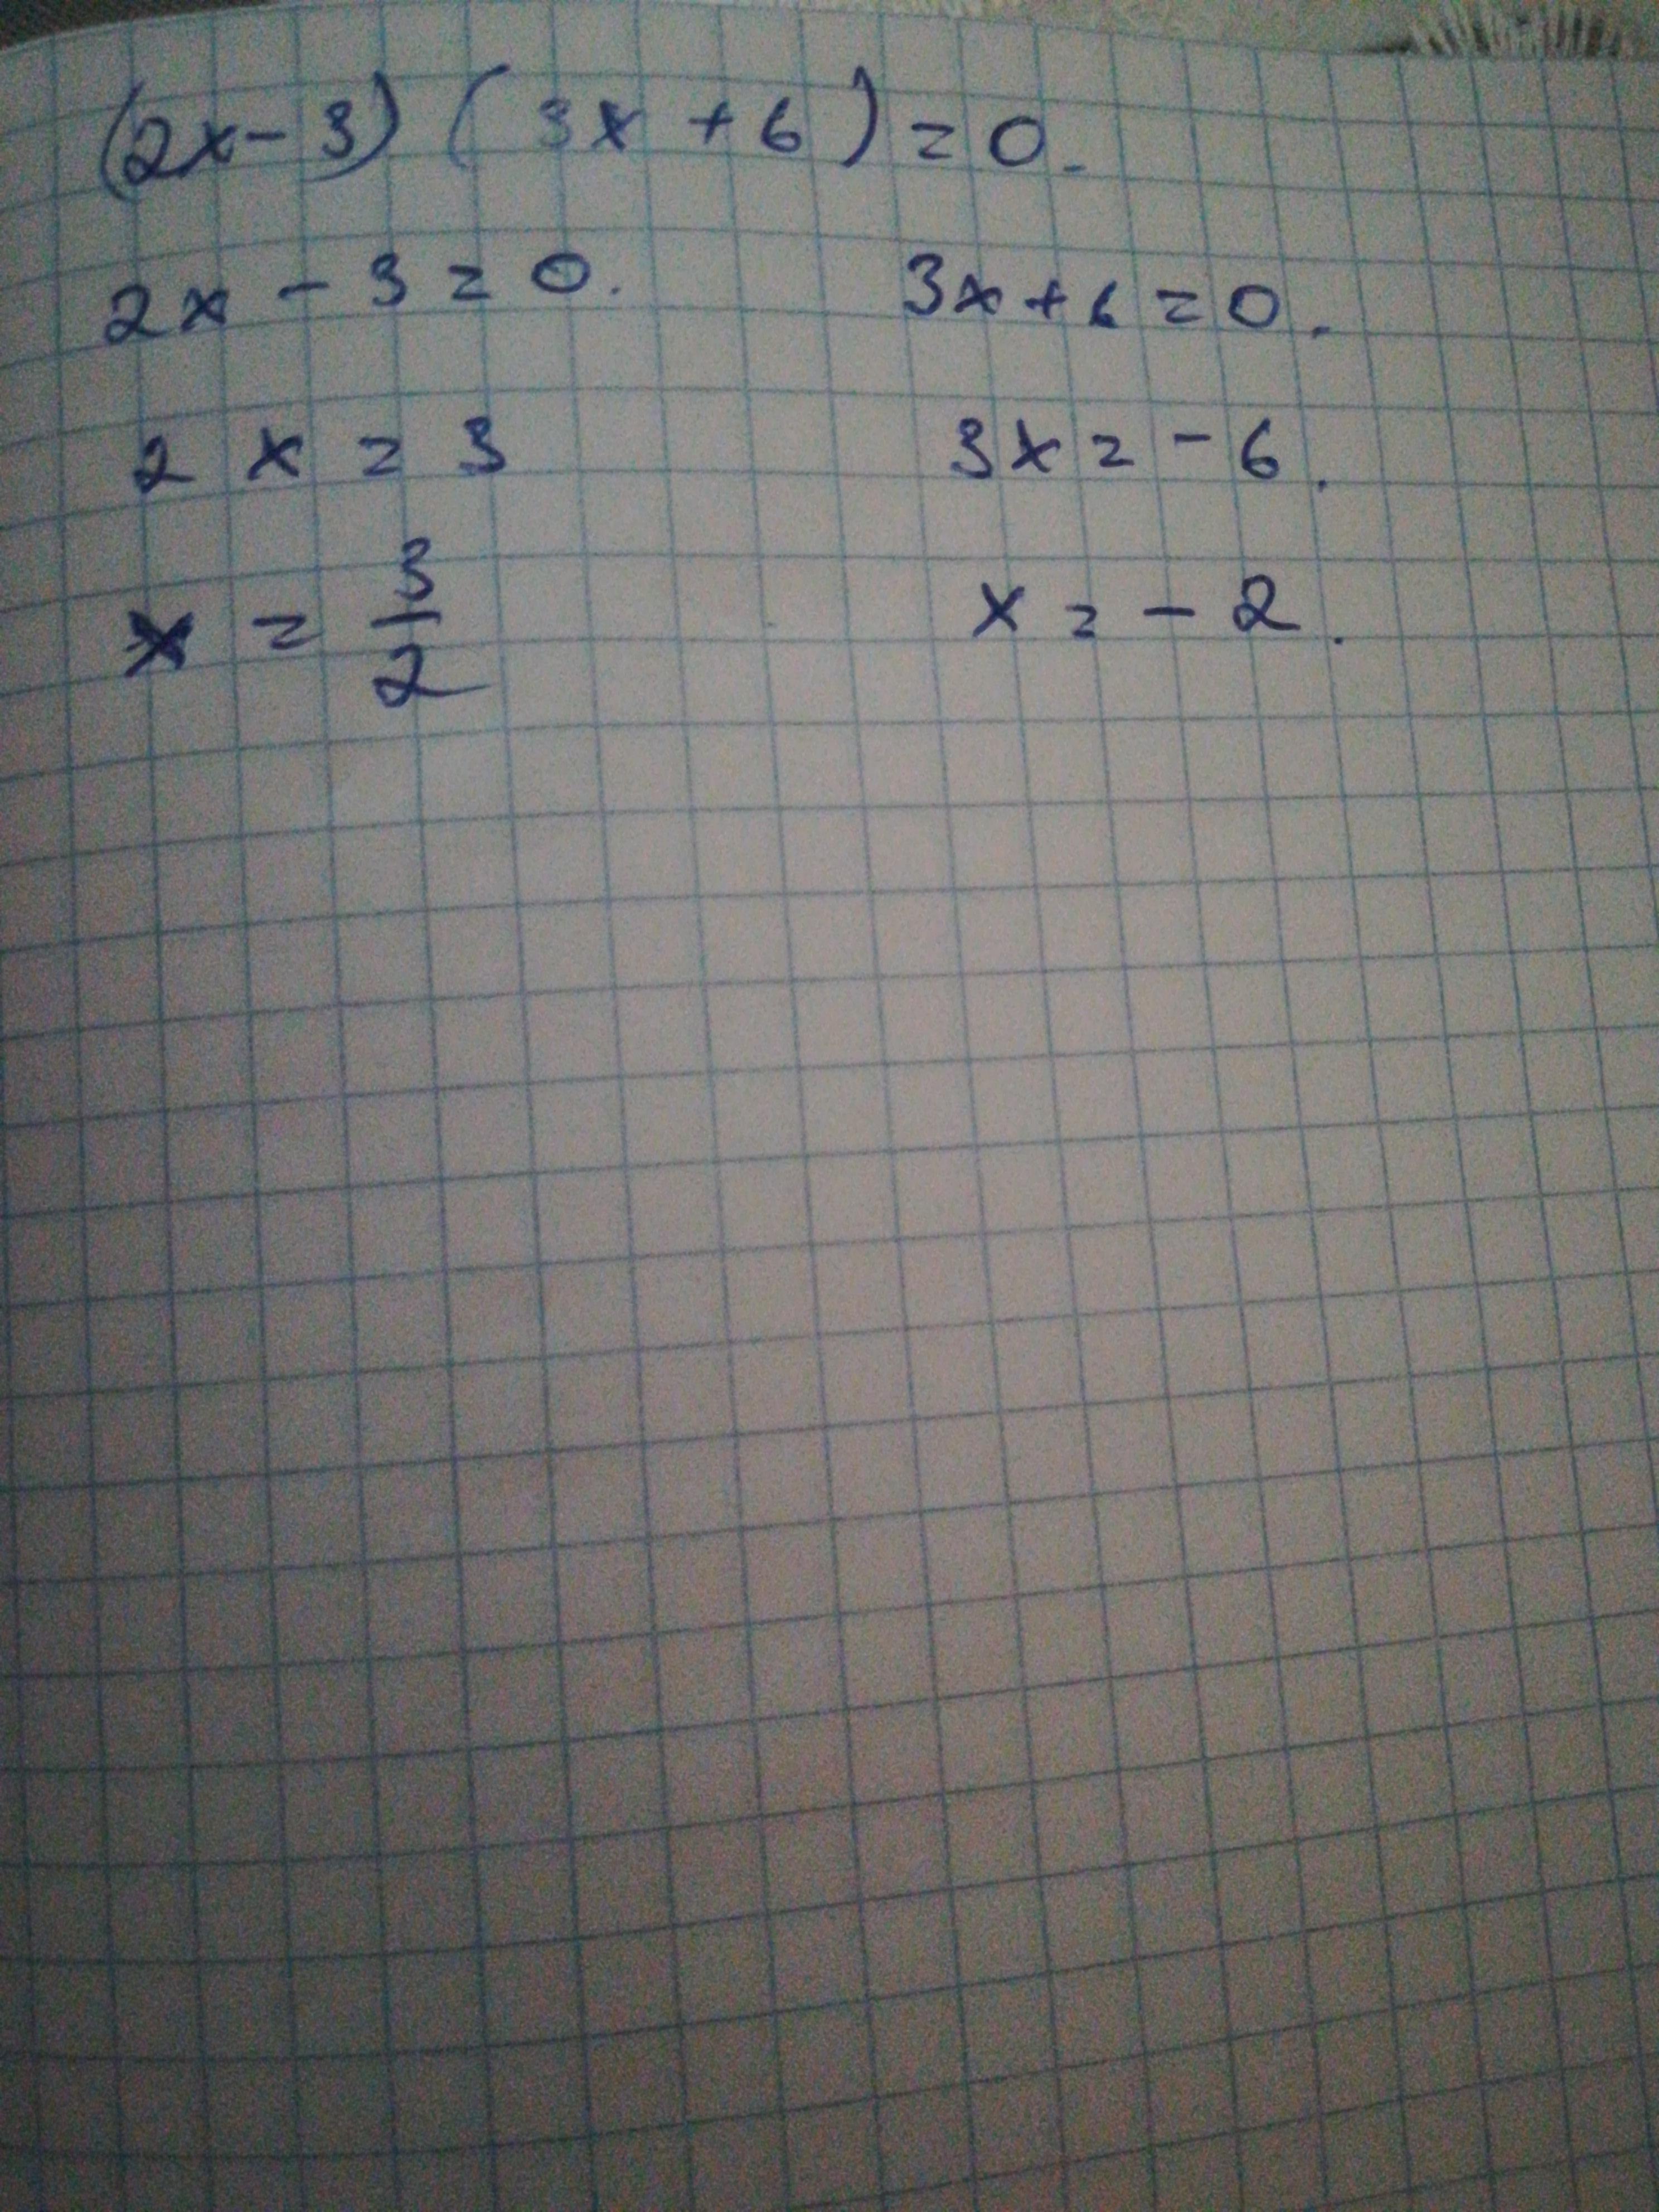 (2x-3) (3x+6)=0.
2x-3=0. 3x+6=0.
2x=3 3x=-6.
x=3/2 x=-2.